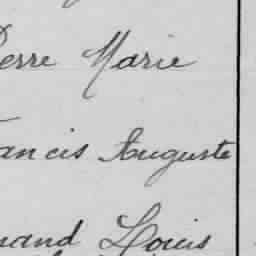 ierre Marie
ancis Auguste
nand Louis